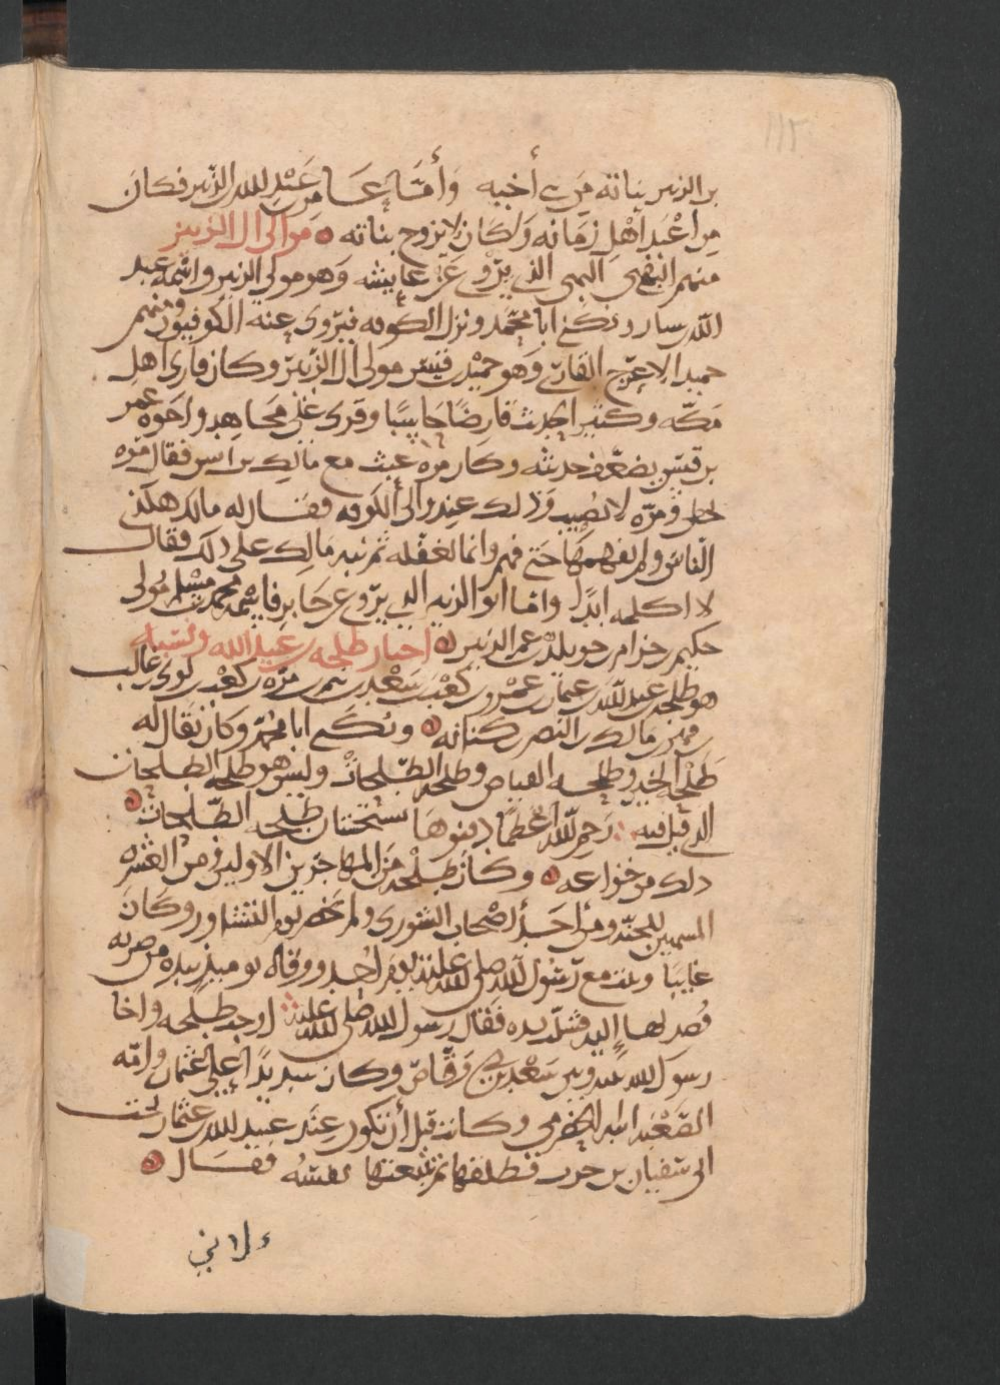 ١١٢
بن الزبير بناته من بني أخيه وأمّا عامر بن عَبْد الله بن الزبير فكانَ
من اعْبَد اهْلِ زمَانه وَكان لا يزوج بناته ⊙ مَوالى ال الزبير
منهم البهي الذي يرْوي عَن عايشه وَهو مولى الزبير واسْمه عبد
الله بن يسار ويكنى ابا محمد ونزل الكوفه فيرْوى عنه الكوفيون ومنهم
حميد الاعرج القارئ وَهو حميْد بن قيس مولى ال الزبير وكان قارى اهل
مكه وكثير الحديث فارضًا حاسبًا وقرى على مجاهد واخوه عمر
بن قيس يضعّف حديثه وكان مره عبث مع مالك بن انس فقال مره
يخطى ومره لا يصيب وذلك عند والى الكوفه فقال له مالك هكذى
الناس ولم يفهمها حتى فهم وانما تغفله ثم نبه مالك على ذلك فقال
لا اكلمه ابدًا واما ابو الزبير الذي يرْوي عن جابر فاسْمه محمد بن مسْلم مولى
حكيم بن حزام بن خويلد بن عم الزبير ⊙ اخبار طلحه بن عبيد الله ونسَبه
هو طلحه بن عبيد الله بن عثمان بن عمْرو بن كعْب بن سَعْد بن تيم بن مرّه بن كعْب بن لوى بن غالب
بن فهر بن مالك بن النضر بن كنانه ⊙ ويُكنى ابا محمّد وكان يقال له
طلْحه الخير وطلحه الفياض وطلحه الطّلحات وليس هو طلحه الطلحات
الذي قيل فيه رَحم الله اعْظمًا دفنوهَا بسجستان طلحه الطّلحات ⊙
ذلك من خزاعه ⊙ وكان طلْحه من المهاجرين الاولين ومن العشره
المسمين للجنّه ومن احَد أصْحاب الشورى ولم يحضر يوم التشاور وكانَ
غايبًا وثبت مع رسُول الله صلى الله عليه يوم احُد ووقاه يوميذ بيده من ضربه
قُصد لها إليه فشلّت يده فقال رسول الله صلى الله عليه اوجب طلحه واخا
رسوَل الله بينه وبين سَعْد بن أبي وَقّاص وكان شديدًا على عثمان وامّه
الصّعْبه ابنة الحضرمي وكانت قبل أن تكون عند عبيد الله بن عثمان تحت
ابى سُفيان بن حرب فطلقها ثم تتبعتها نفسُه فقال ⊙